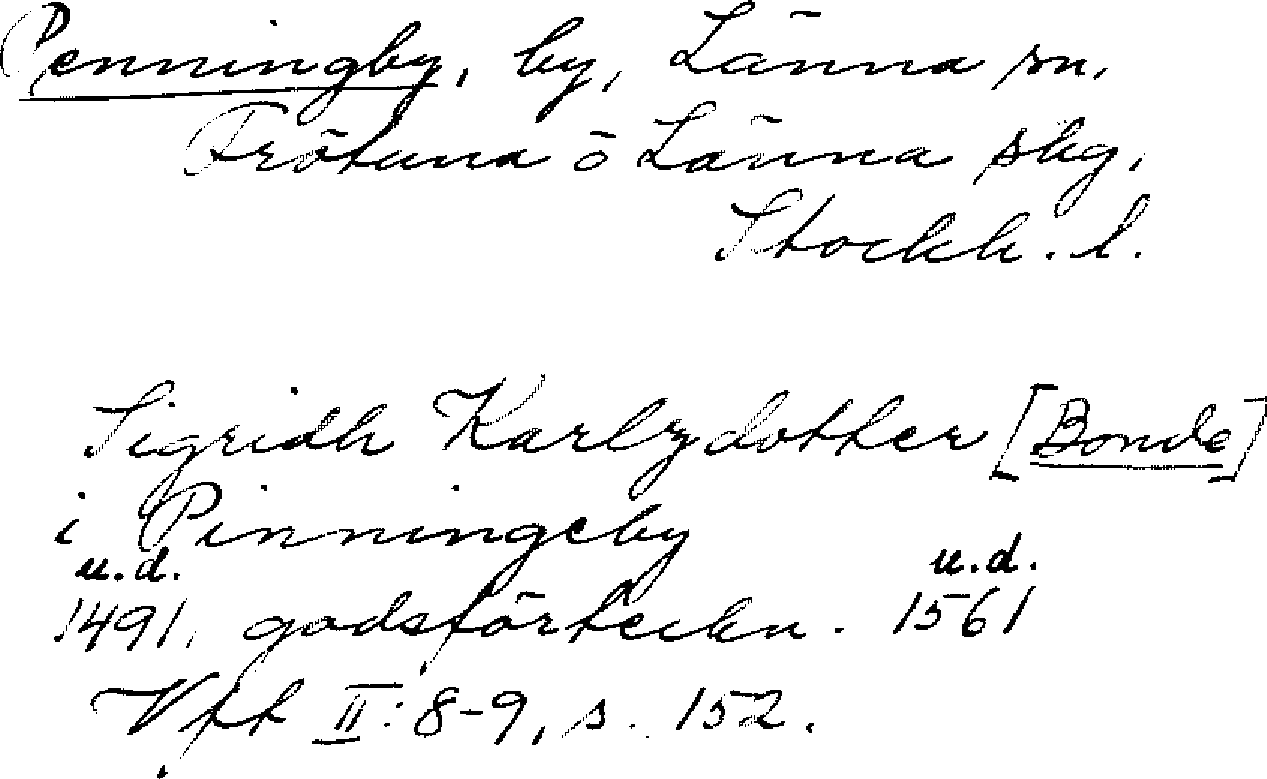 Penningby, by, Länna sn,
Frötuna o Länna skg,
Stockh. l.
Sigridh Karlzdotter [Bonde]
i Pinningeby
u.d. u.d.
1491, godsförteckn. 1561
Vpt II: 8-9, s. 152.